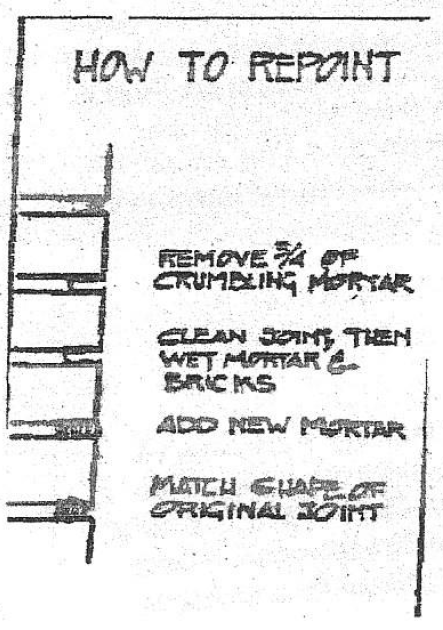 HOW TO REPOINT
REMOVE 3/4 OF
CRUMBLING MORTAR
CLEAN JOINT, THEN
WET MORTAR &
BRICKS
ADD NEW MORTAR
MATCH SHAPE OF
ORIGINAL JOINT